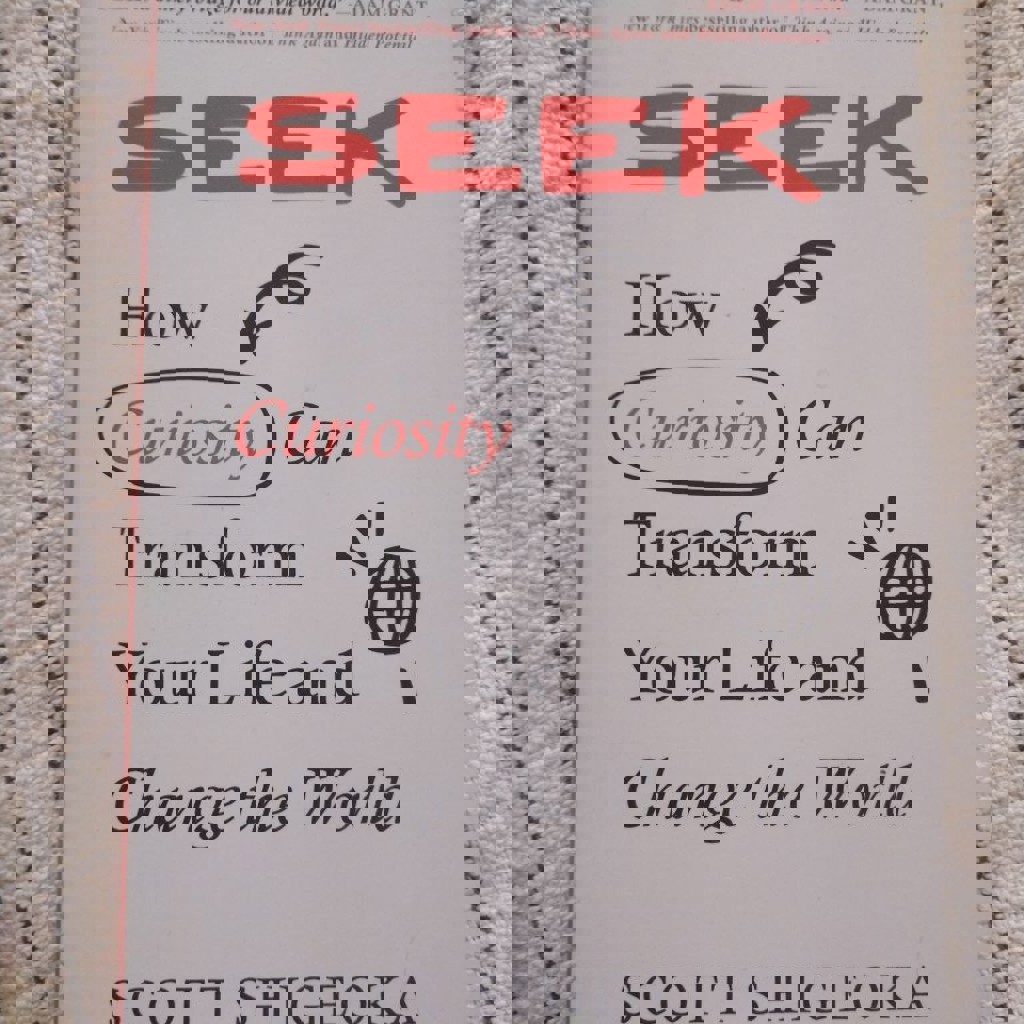 SEEK
How How
Curiosity Curiosity Can Curiosity Can
Transform Transform
Your Life and Your Life and
Change the World Change the World
SCOTT SHIGEOKA SCOTT SHIGEOKA